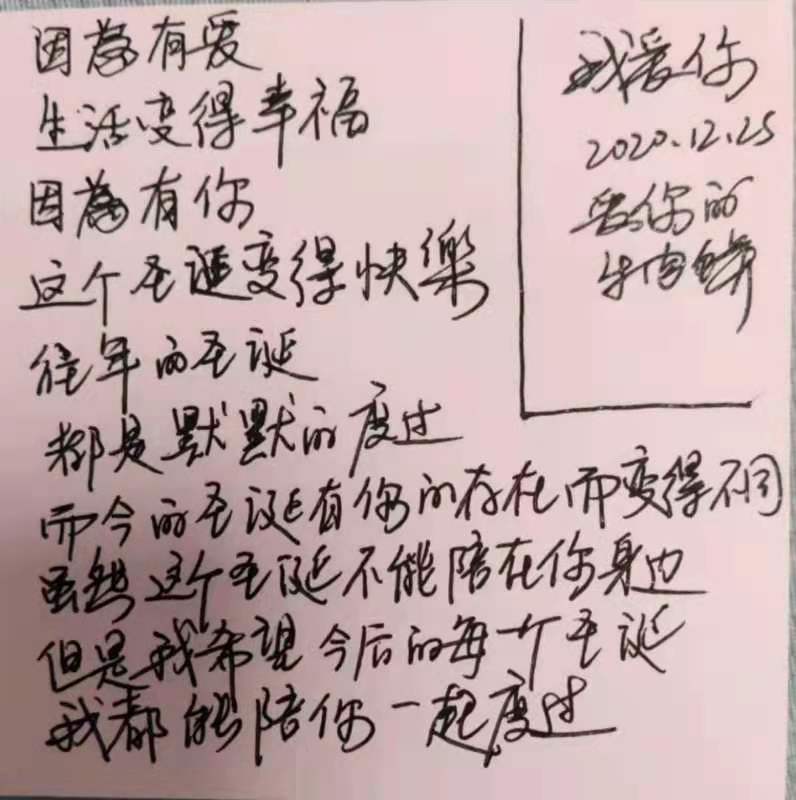 因為有爱
生活变得幸福
因為有你
这个圣诞变得快樂
往年的圣诞
都是默默的度过
而今的圣诞有你的存在而变得不同
虽然这个圣诞不能陪在你身边
但是我希望今后的每一个圣诞
我都能陪你一起度过
我爱你
2020.12.25
爱你的